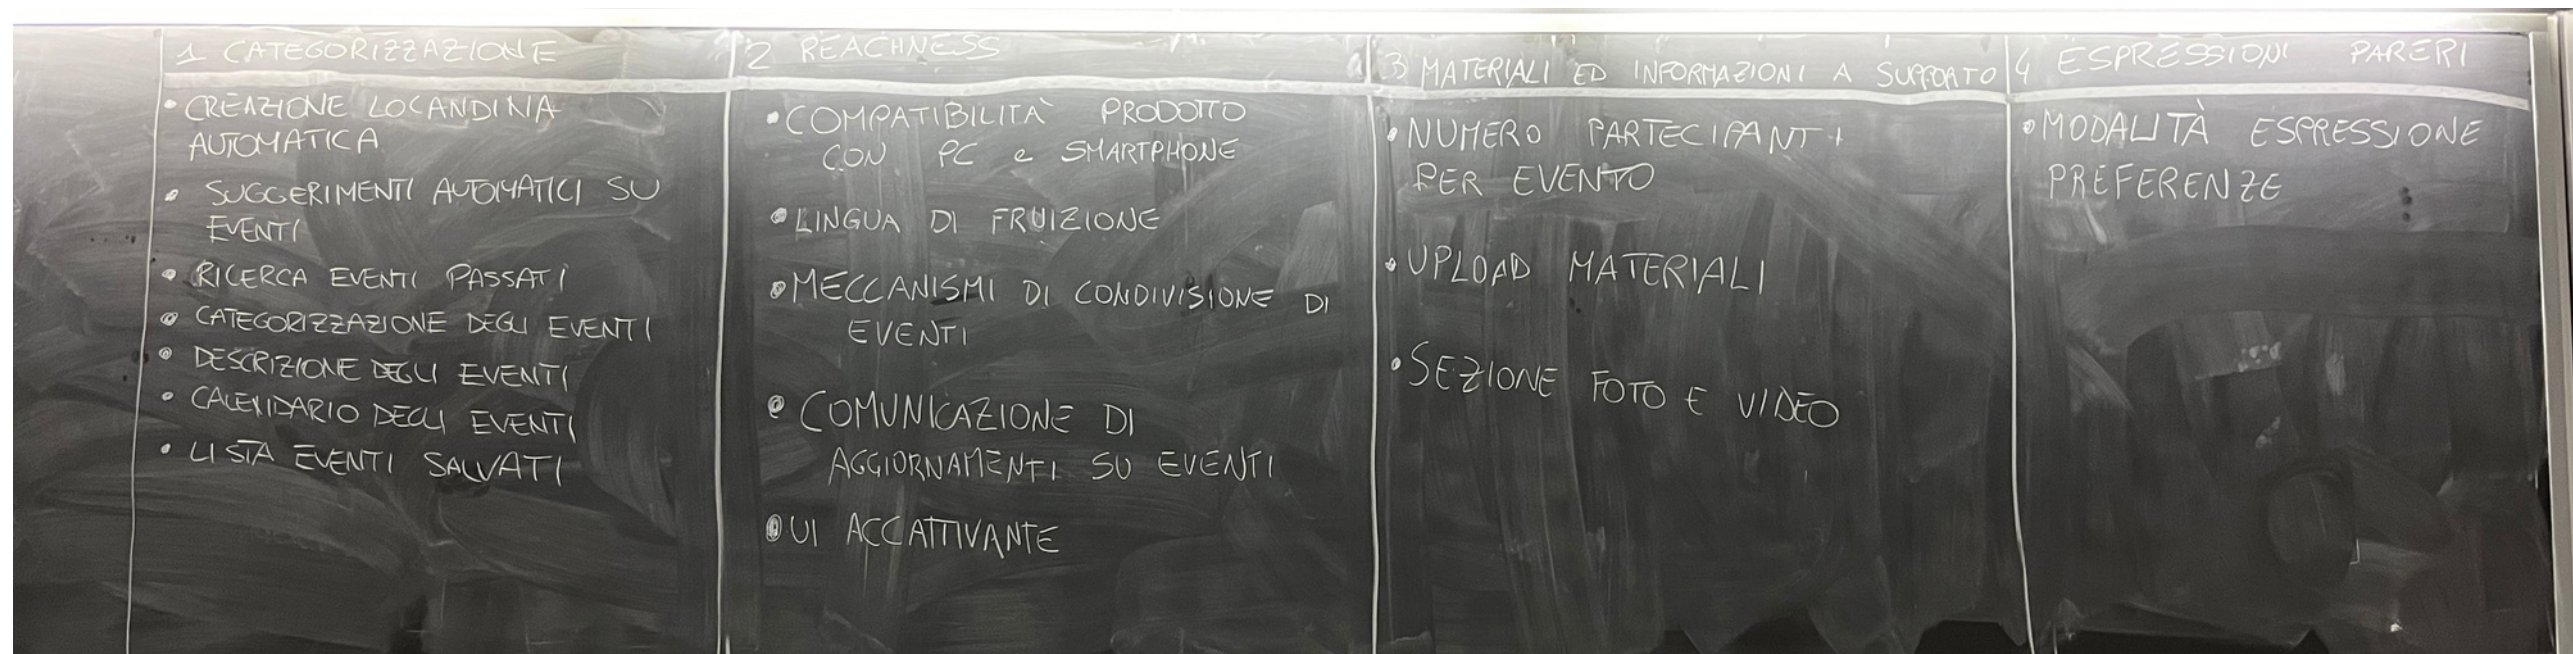 1 CATEGORIZZAZIONE
• CREAZIONE LOCANDINA
AUTOMATICA
• SUGGERIMENTI AUTOMATICI SU
EVENTI
• RICERCA EVENTI PASSATI
• CATEGORIZZAZIONE DEGLI EVENTI
• DESCRIZIONE DEGLI EVENTI
• CALENDARIO DEGLI EVENTI
• LISTA EVENTI SALVATI
2 REACHNESS
• COMPATIBILITÀ PRODOTTO
CON PC e SMARTPHONE
• LINGUA DI FRUIZIONE
• MECCANISMI DI CONDIVISIONE DI
EVENTI
• COMUNICAZIONE DI
AGGIORNAMENTI SU EVENTI
• UI ACCATTIVANTE
3 MATERIALI ED INFORMAZIONI A SUPPORTO
• NUMERO PARTECIPANTI
PER EVENTO
• UPLOAD MATERIALI
• SEZIONE FOTO E VIDEO
4 ESPRESSIONI PARERI
• MODALITÀ ESPRESSIONE
PREFERENZE